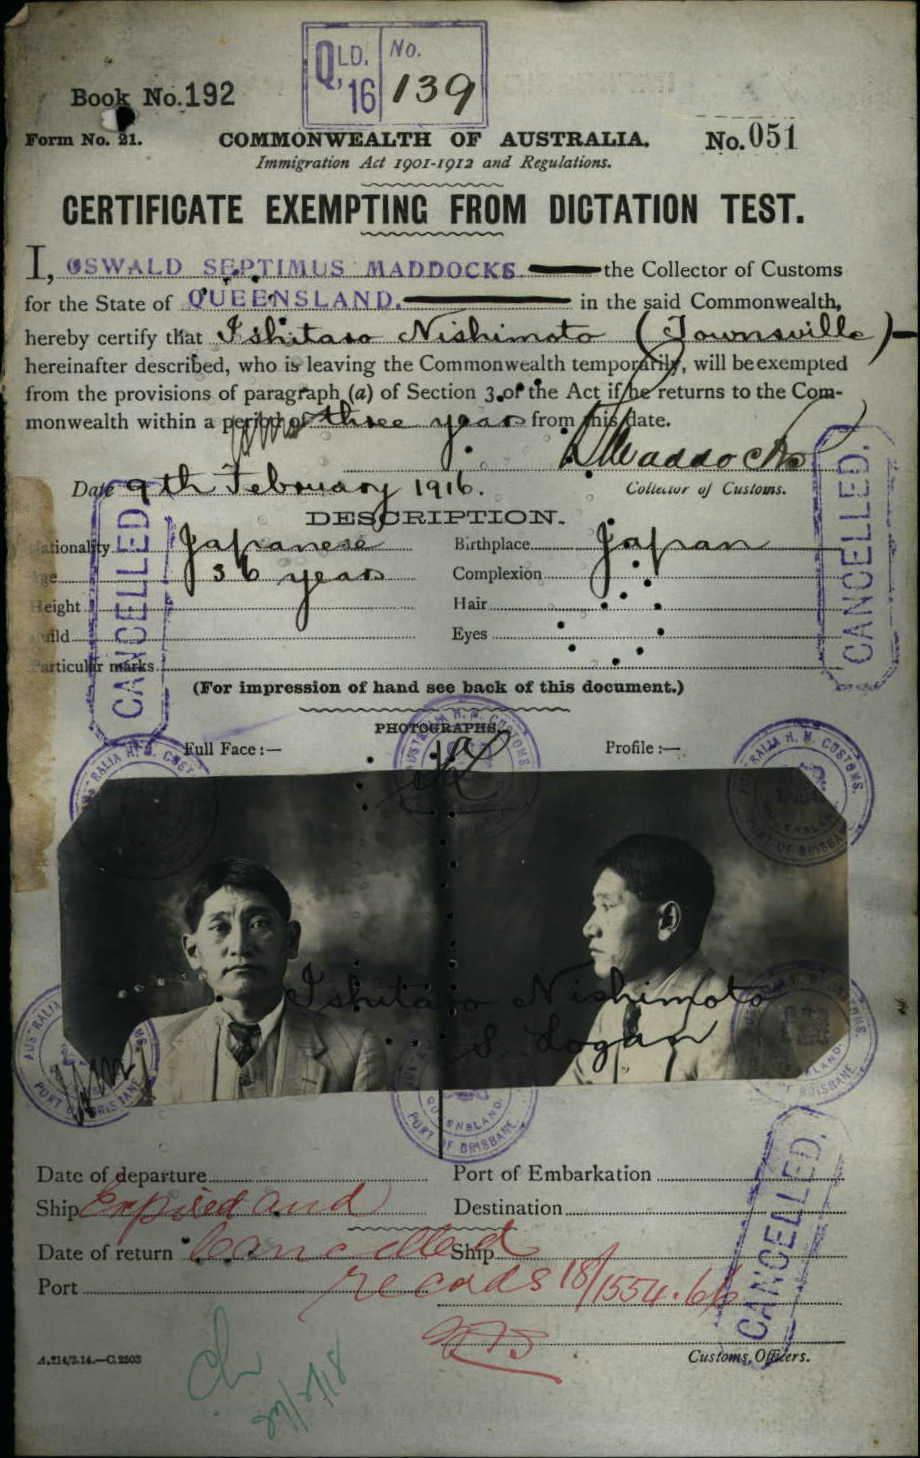 QLD. 16 No. 139
Book No. 192
Form No. 21. COMMONWEALTH OF AUSTRALIA. No. 051
Immigration Act 1901-1912 and Regulations.
CERTIFICATE EXEMPTING FROM DICTATION TEST.
I, OSWALD SEPTIMUS MADDOCKS the Collector of Customs
for the State of QUEENSLAND. in the said Commonwealth,
hereby certify that Ishitaso Nishimoto (Townsville)
hereinafter described, who is leaving the Commonwealth temporarily, will be exempted
from the provisions of paragraph (a) of Section 3 of the Act if he returns to the Com-
monwealth within a period of three years from this date.
Maddocks
Date 9th February 1916. Collector of Customs.
DESCRIPTION.
Nationality Japanese Birthplace Japan
Age 36 years Complexion
Height Hair
Build Eyes
Particular marks
CANCELLED.
CANCELLED.
(For impression of hand see back of this document.)
PHOTOGRAPHS.
Full Face:— Profile:—
AUSTRALIA H. M. CUSTOMS.
AUSTRALIA H. M. CUSTOMS.
AUSTRALIA H. M. CUSTOMS. PORT OF BRISBANE
Ishitaso Nishimoto
S. Logan
AUSTRALIA PORT OF BRISBANE
QUEENSLAND. PORT OF BRISBANE
PORT OF BRISBANE
Date of departure Port of Embarkation
Ship Expired and Destination
Date of return Cancelled Ship
Port records 18/1554.66
CANCELLED.
A.214/3.14.—C.2503 Customs Officers.